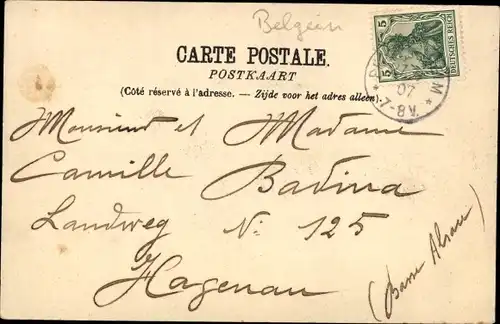 Belgien
CARTE POSTALE.
POSTKAART
(Côté réservé à l'adresse. — Zijde voor het adres alleen).
5 5
DEUTSCHES REICH
07
7-8V.
Monsieur et Madame
Camille Badina
Landweg No 125
Hagenau
(Basse Alsace)